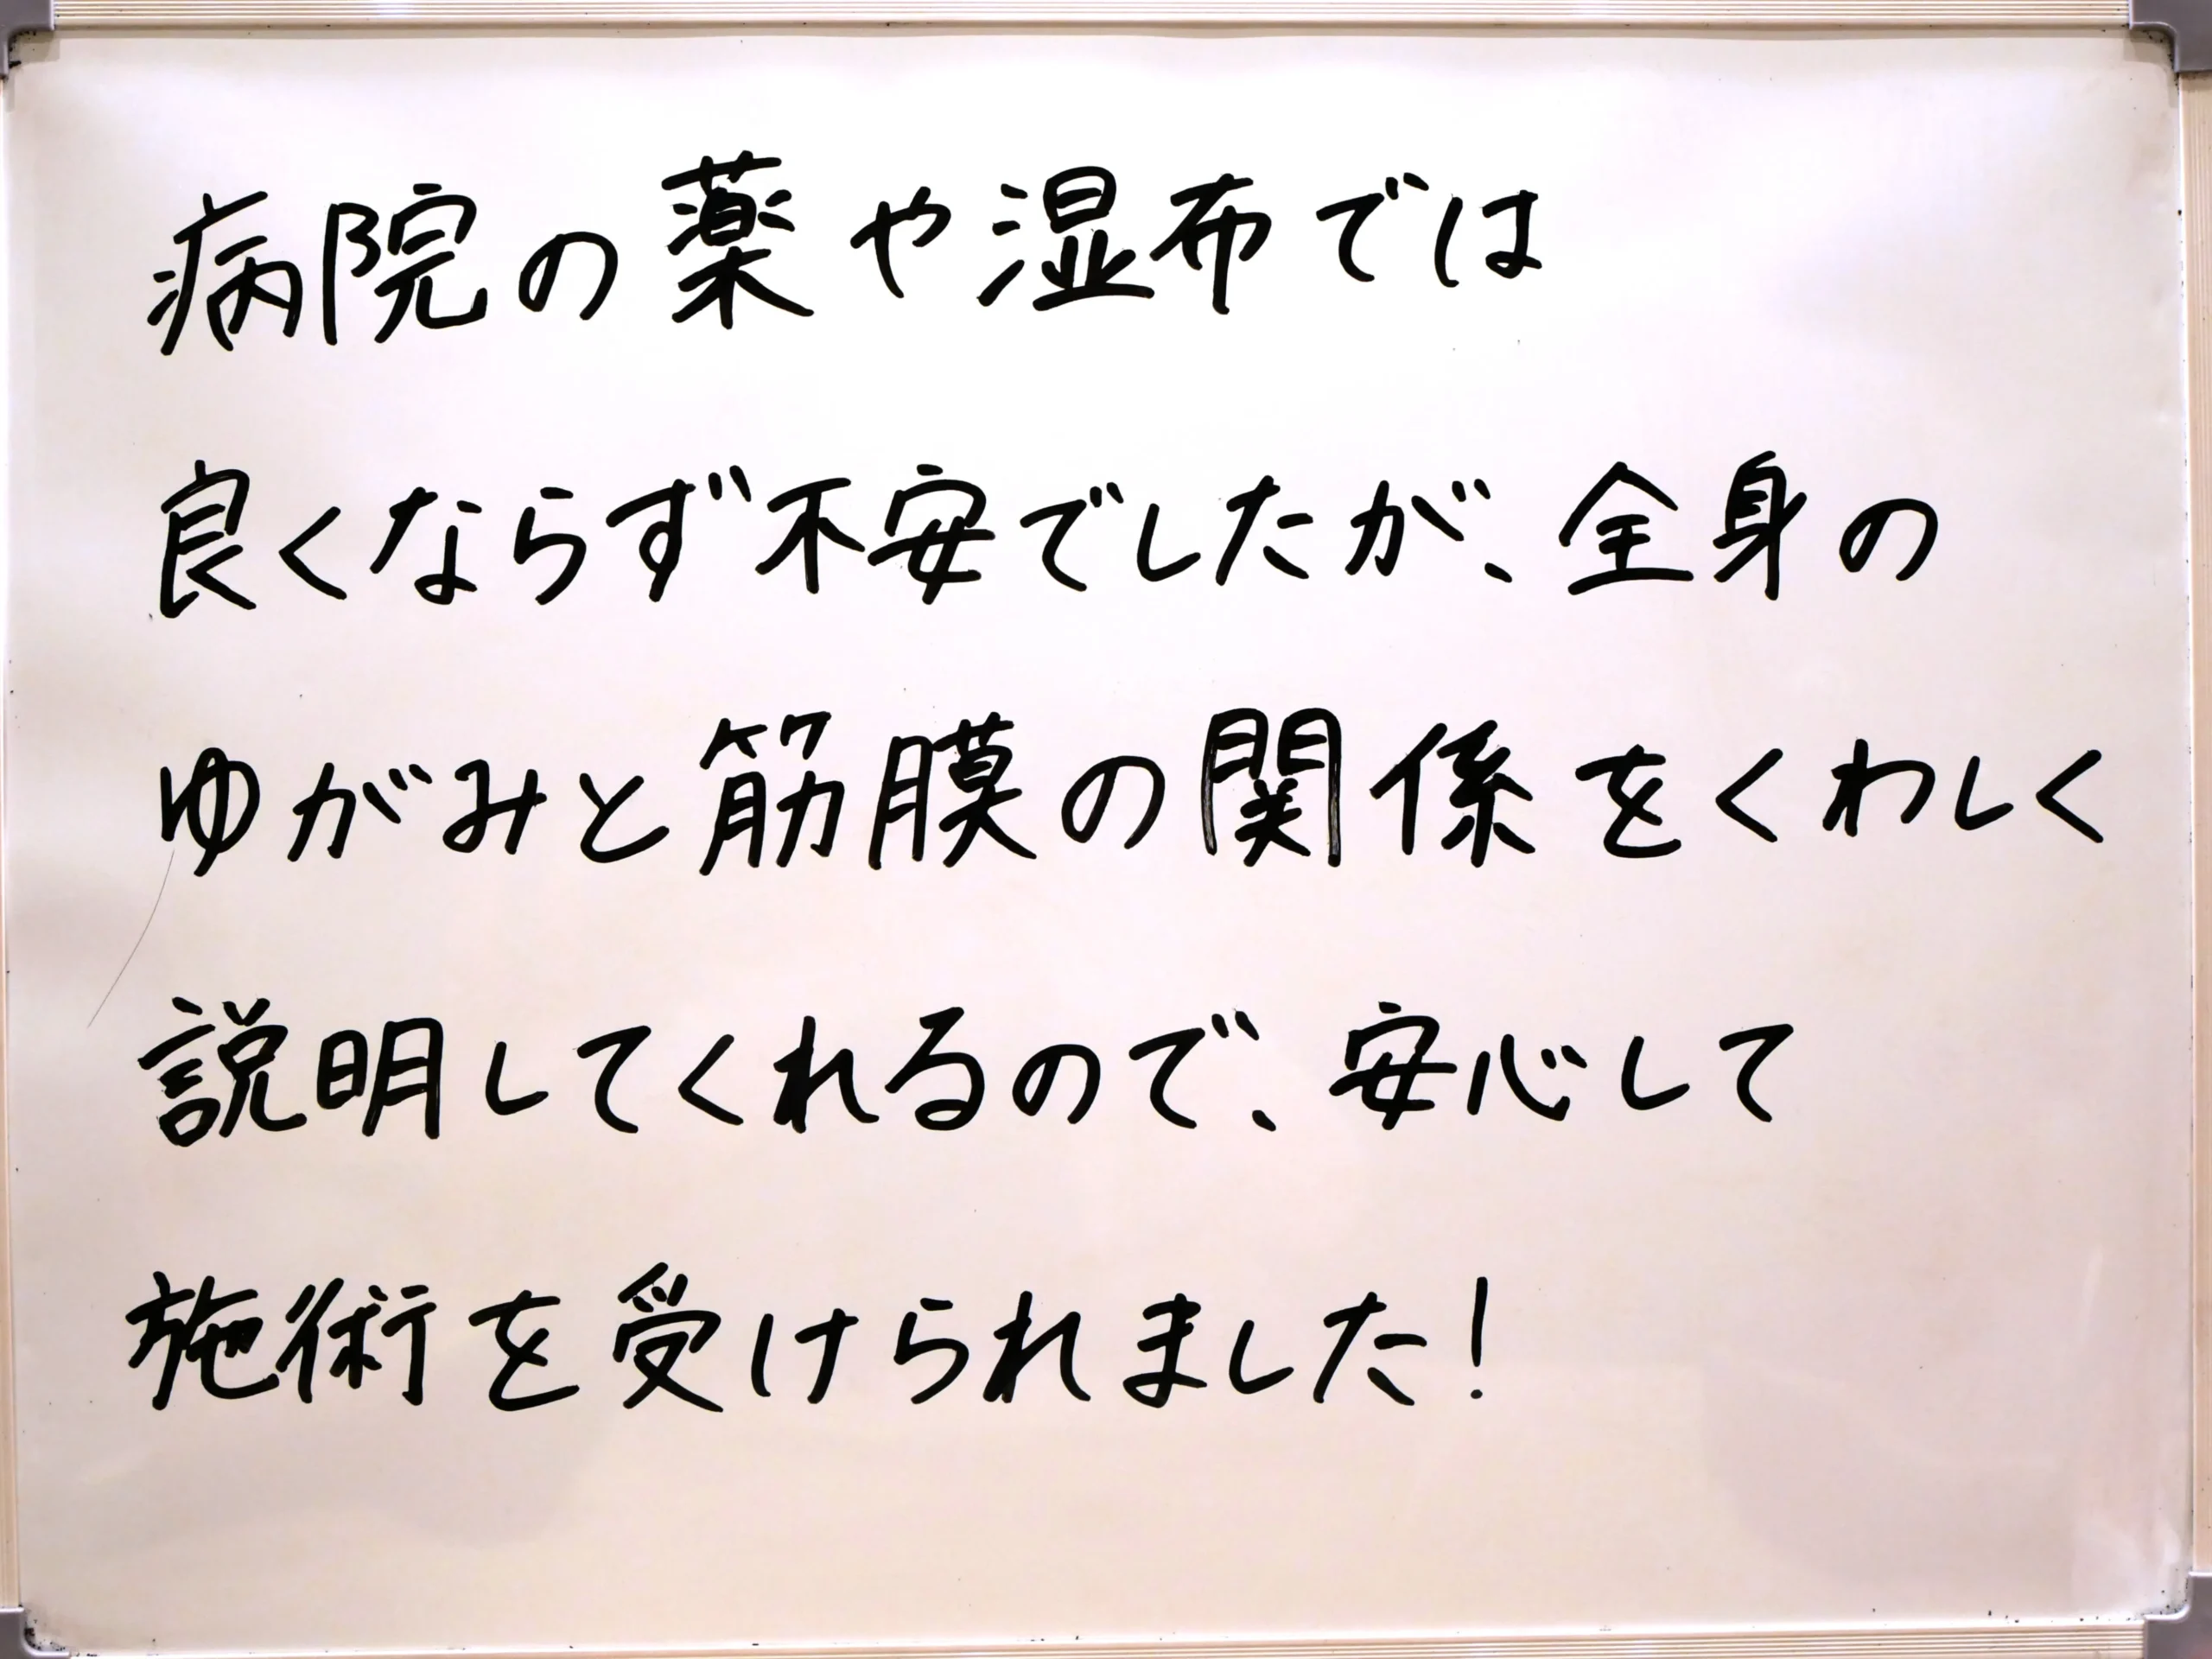 病院の薬や湿布では
良くならず不安でしたが、全身の
ゆがみと筋膜の関係をくわしく
説明してくれるので、安心して
施術を受けられました!